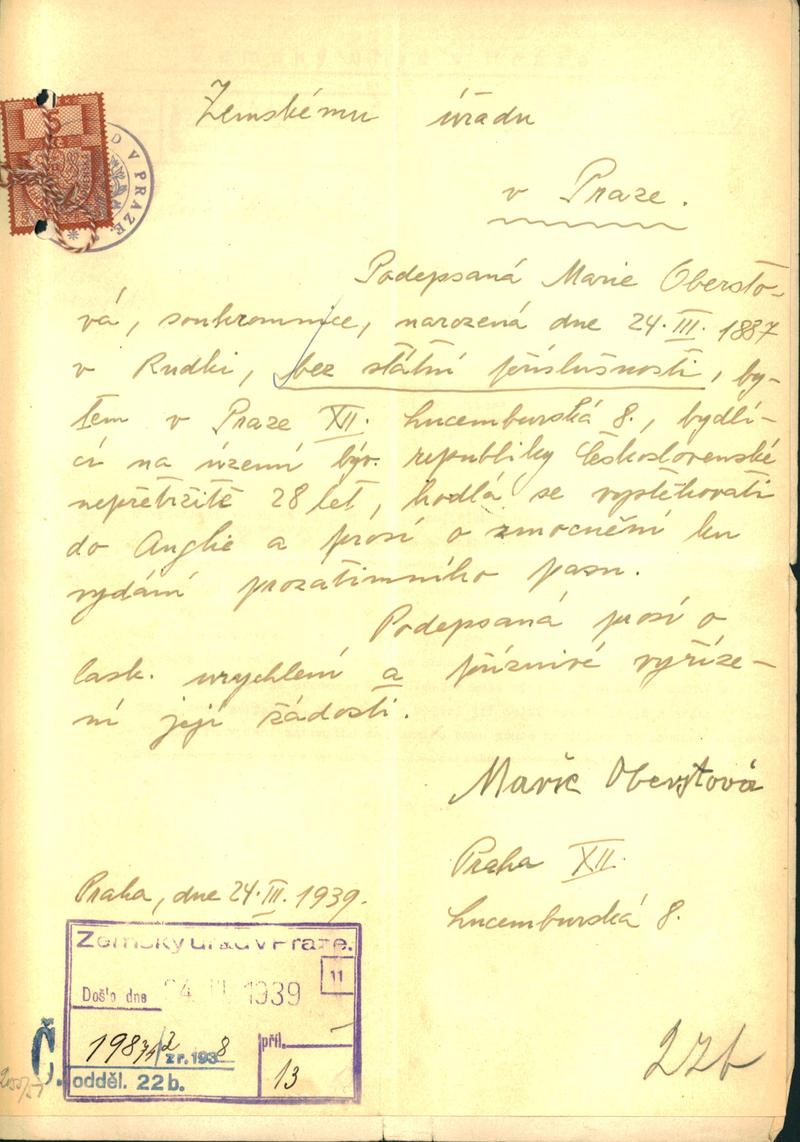 5
D V PRAZE
Zemskému úřadu
v Praze.
Podepsaná Marie Obersto-
vá, soukromnice, narozená dne 24. III. 1887
v Rudki, bez státní příslušnosti, by-
tem v Praze XII. Lucemburská 8., bydlí-
cí na území býv. republiky Československé
nepřetržitě 28 let, hodlá se vystěhovati
do Anglie a prosí o zmocnění ku
vydání prozatimního pasu.
Podepsaná prosí o
lask. urychlení a příznivé vyříze-
ní její žádosti.
Marie Oberstová
Praha XII.
Lucemburská 8.
Praha, dne 24. III. 1939.
Zemský úřad v Praze.
11
Došlo dne 24. III 1939
Č.
z r. 1938
příl.
odděl. 22b.
13
22b